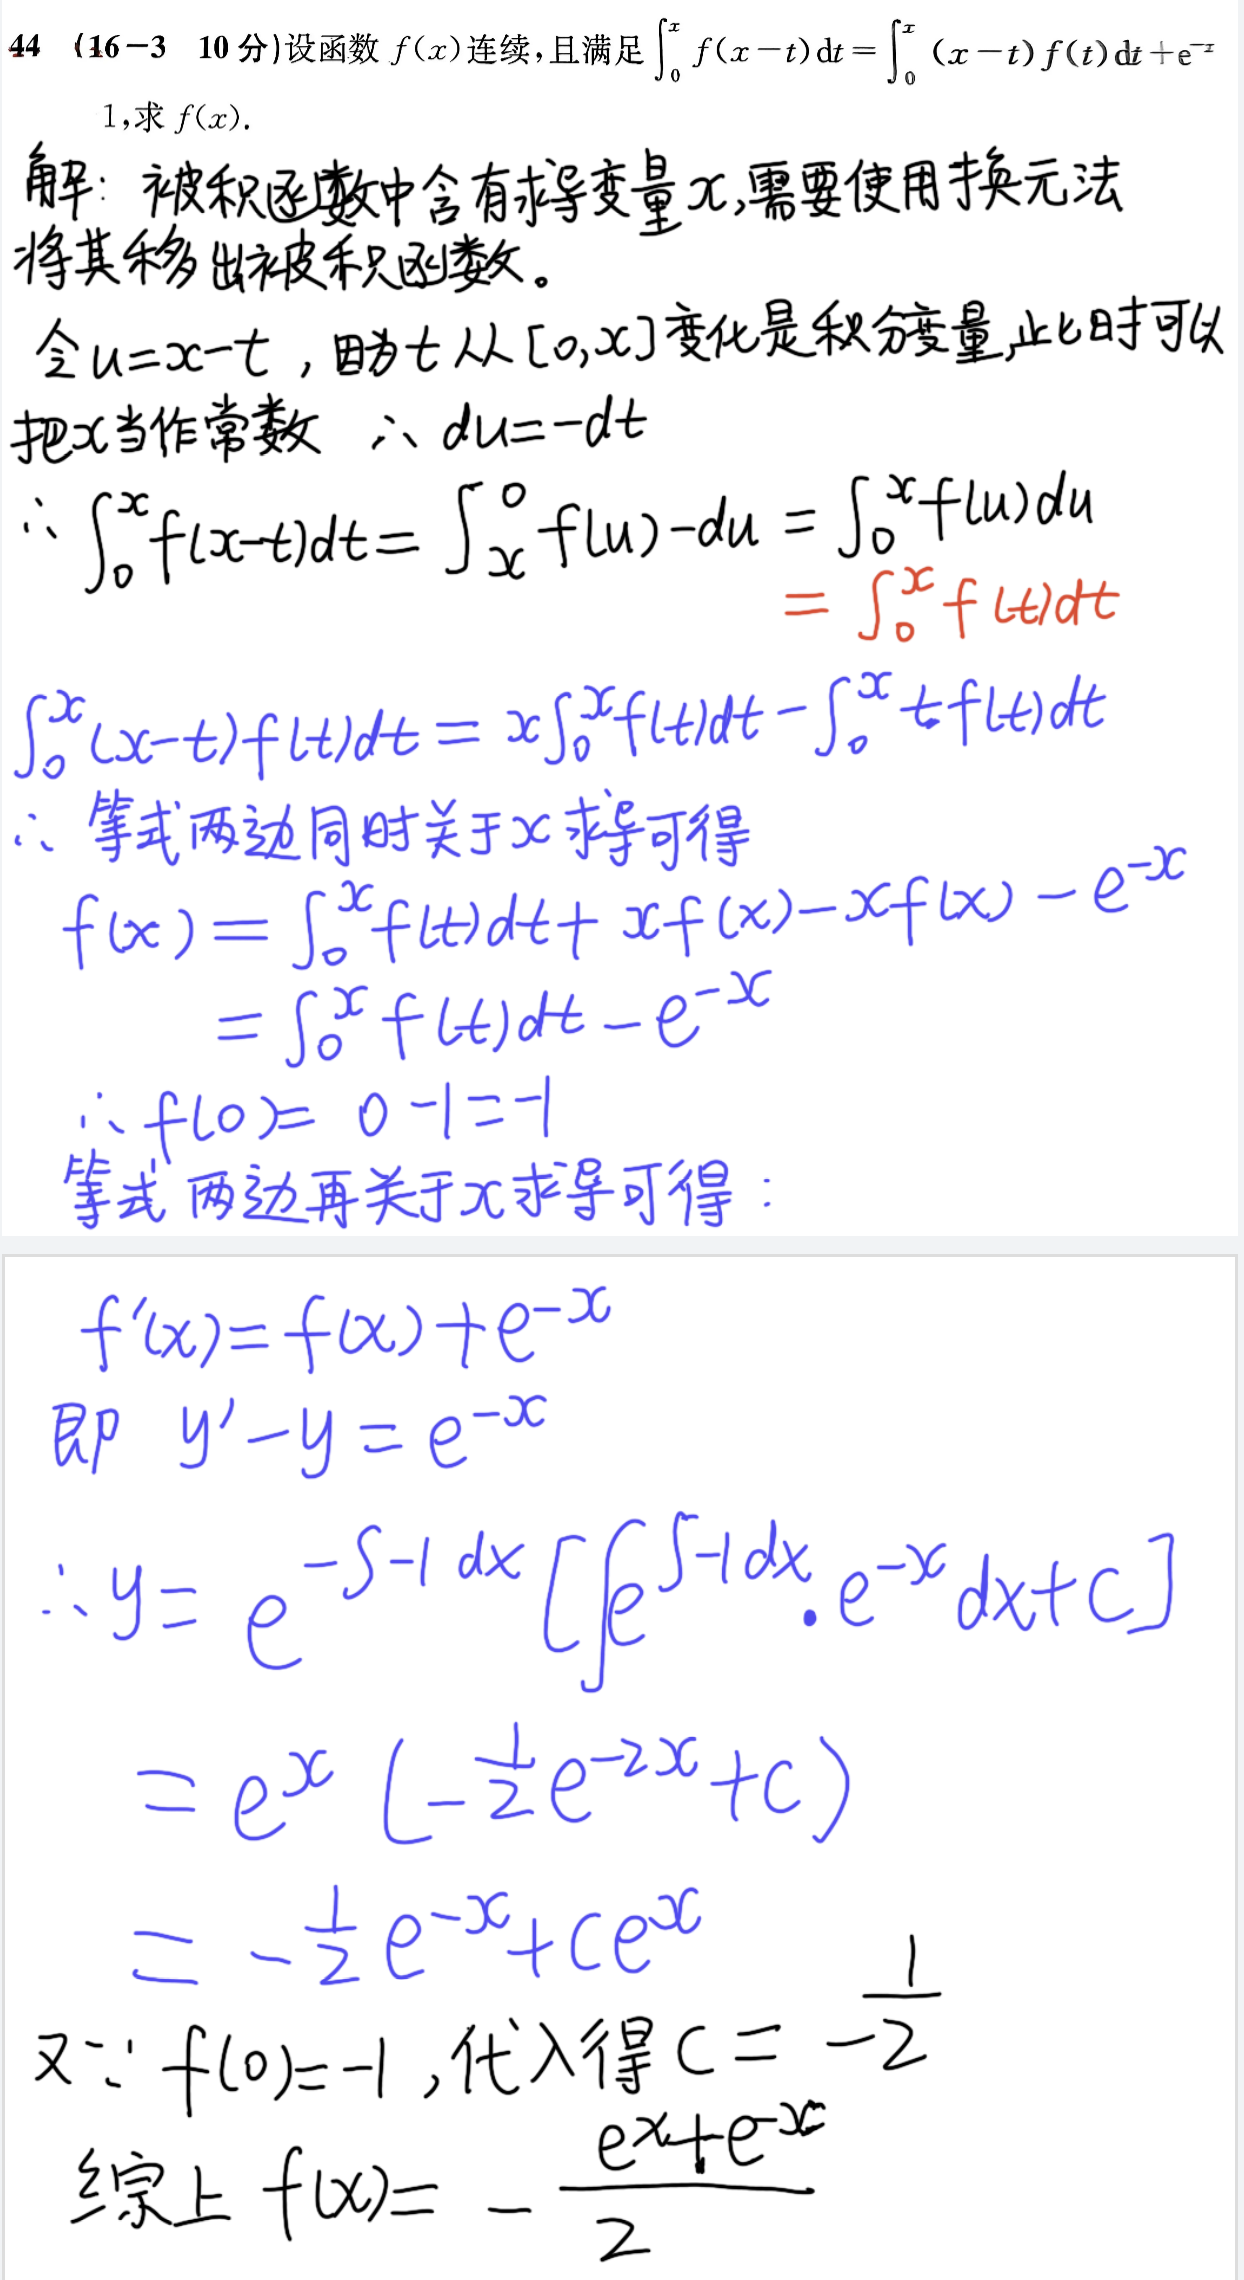 44 (16-3 10分)设函数 f(x)连续,且满足 ∫₀ˣ f(x-t)dt=∫₀ˣ (x-t)f(t)dt+e⁻ˣ
1,求 f(x).
解: 被积函数中含有求导变量x,需要使用换元法
将其移出被积函数。
令u=x-t,因为t从[0,x]变化是积分变量,此时可以
把x当作常数 ∴ du=-dt
∴ ∫₀ˣ f(x-t)dt = ∫ₓ⁰ f(u)-du = ∫₀ˣ f(u)du
= ∫₀ˣ f(t)dt
∫₀ˣ (x-t)f(t)dt = x∫₀ˣ f(t)dt - ∫₀ˣ t f(t)dt
∴ 等式两边同时关于x求导可得
f(x) = ∫₀ˣ f(t)dt + xf(x) - xf(x) - e⁻ˣ
= ∫₀ˣ f(t)dt - e⁻ˣ
∴ f(0)= 0-1=-1
等式两边再关于x求导可得:
f'(x)=f(x)+e⁻ˣ
即 y'-y=e⁻ˣ
∴ y= e^(-∫-1dx) [∫e^(∫-1dx)·e⁻ˣdx+C]
= eˣ(-1/2 e⁻²ˣ+C)
= -1/2 e⁻ˣ+Ceˣ
又∵ f(0)=-1,代入得 C= 1/-2
综上 f(x)= - (eˣ+e⁻ˣ)/2